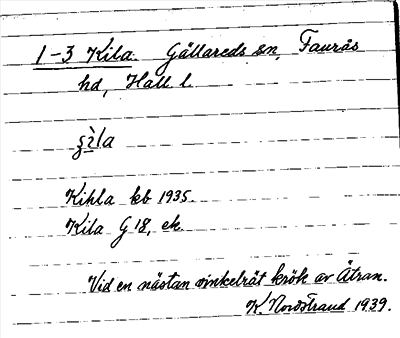 1-3 Kila. Gällareds sn, Faurås
hd, Hall. l.
Kihla kb 1935.
Kila G 18, ek.
Vid en nästan vinkelrät krök av Ätran.
K. Nordstrand 1939.